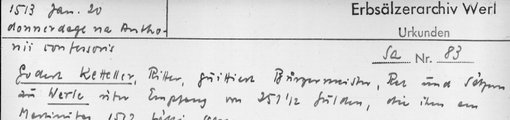 1513 Jan. 20
donnerdage na Antho-
nii confessoris
Erbsälzerarchiv Werl
Urkunden
Sa Nr. 83
Godert Ketteler, Ritter, quittiert Bürgermeister, Rat und Sälzern
zu Werle über Empfang von 251 1/2 Gulden, die ihm am
Martinitag 1512